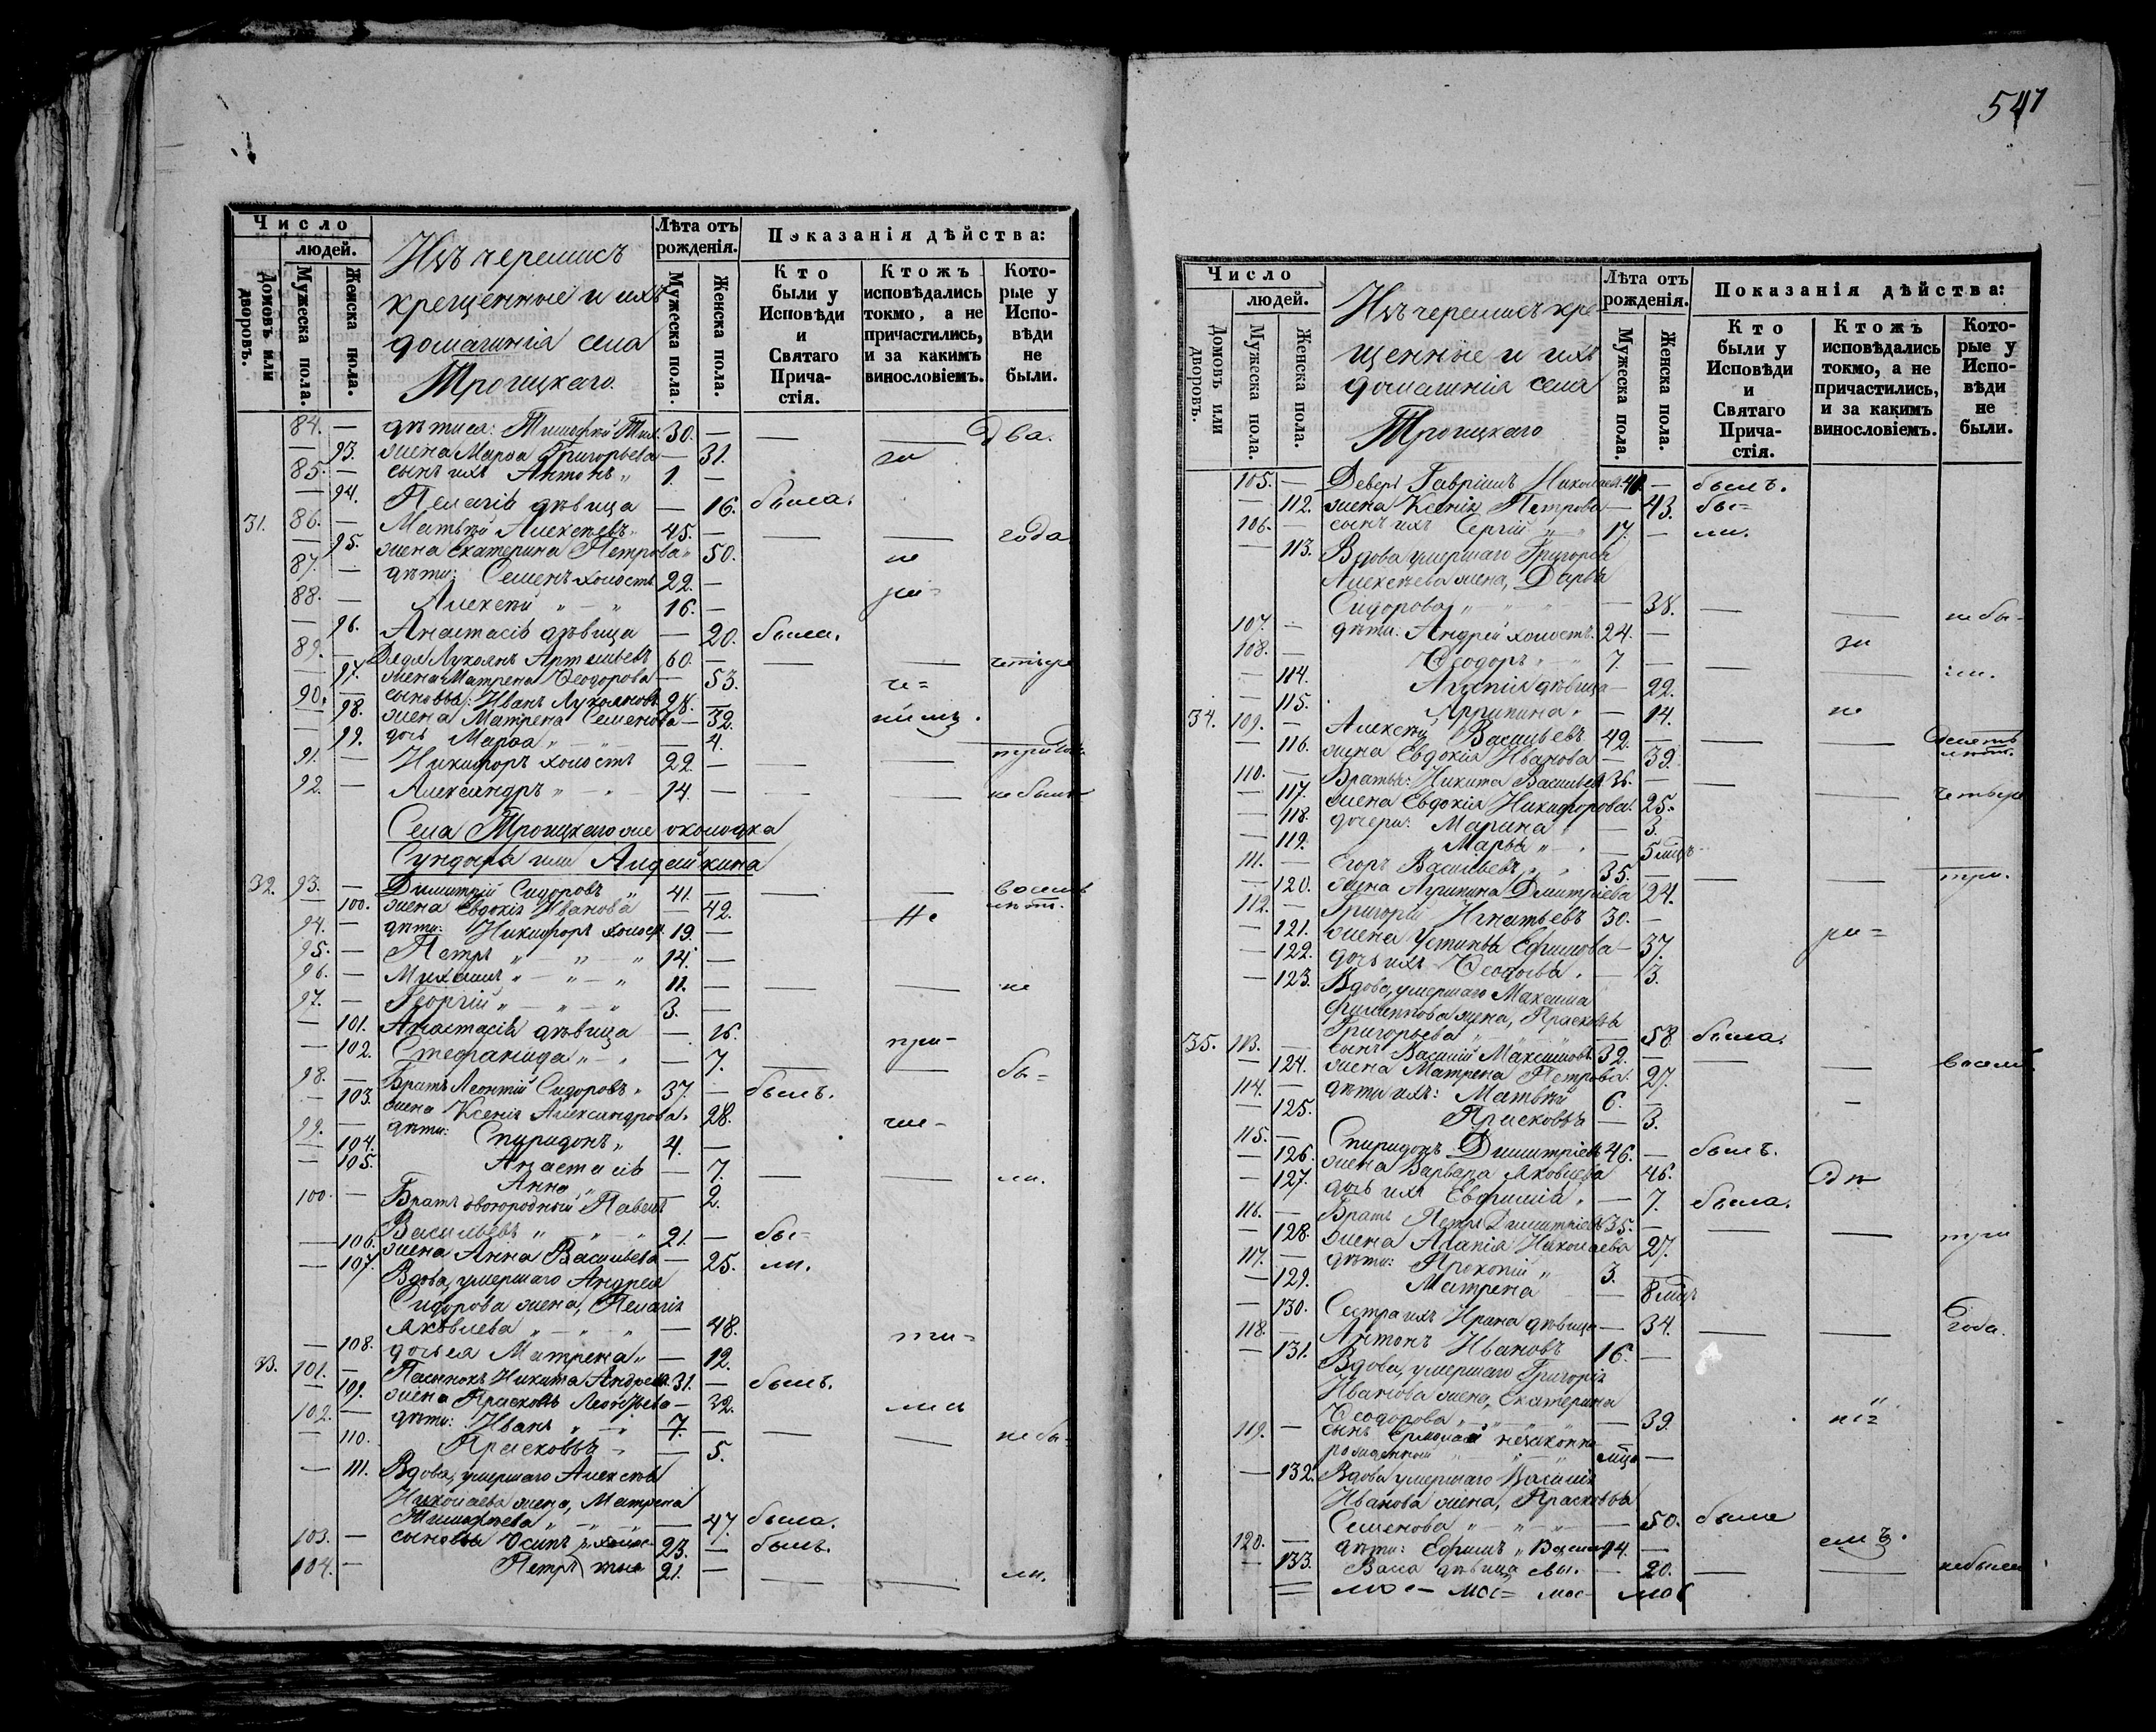 541
Число
людей.
Домовъ или дворовъ.
Мужеска пола.
Женска пола.
Изъ черемисъ
крещенные и ихъ
домашнія села
Троицкаго.
Лѣта отъ рожденія.
Мужеска пола.
Женска пола.
Показанія дѣйства:
Кто были у Исповѣди и Святаго Причастія.
Ктожъ исповѣдались токмо, а не причастились, и за какимъ винословіемъ.
Которые у Исповѣди не были.
84. — дѣти ея: Тимофѣй 30. — — — Два.
— 93. жена Марѳа Григорьева — 31. за
85. — сынъ ихъ Антонъ „ 1. —
— 94. Пелагія дѣвица — 16. была.
31. 86. — Матѳей Алексѣевъ 45. — — — года
— 95. жена Екатерина Петрова „ 50. не
87. — дѣти: Семенъ холостъ 22. —
88. — Алексѣй „ — „ 16. — ра=
— 96. Анастасія дѣвица — 20. была.
89. — Дядя Лукоянъ Артемьевъ 60. — — — четыре
— 97. жена Матрена Ѳеодорова — 53. че=
90. — сыновья: Иванъ Лукояновъ 28. —
— 98. жена Матрена Семенова — 32. ніемъ.
— 99. дочь Марѳа „ — 4.
91. — Никифоръ холостъ 22. — — — три года
92. — Александръ „ — „ 14. — — — не были
Села Троицкаго же околодка
Сундырь или Алдейкина
32. 93. — Димитрій Сидоровъ „ 41. — — — восемь
— 100. жена Евдокія Иванова — 42. Не лѣтъ.
94. — дѣти: Никифоръ холост. 19. —
95. — Петръ „ — „ — „ 14. —
96. — Михаилъ „ — „ — „ 11. — — — не
97. — Георгій „ — „ — „ 3. —
— 101. Анастасія дѣвица — 16. при-
— 102. Стефанида „ — „ — 7. — — бы=
98. — Братъ Леонтій Сидоровъ „ 37. — былъ.
— 103. жена Ксенія Александрова. 28.
99. — дѣти: Спиридонъ „ 4. —
— 104. Анастасія — 7. — — ли.
— 105. Анна „ — 2.
100. — Братъ двоюродный Павелъ
Васильевъ „ — „ — „ 21. — бы-
— 106. жена Анна Васильева — 25. ли.
— 107. Вдова, умершаго Андрея
Сидорова жена, Пелагія
Яковлева „ — „ — „ — 48. ти=
— 108. дочь ея Матрена „ — 12.
33. 101. — Пасынокъ Никита Андреев. 31. — былъ.
— 109. жена Прасковья Леонтьева — 32.
102. — дѣти: Иванъ „ — „ 7. — — — не бы-
— 110. Прасковья — — 5.
— 111. Вдова, умершаго Алексѣя
Николаева жена, Матрена
Тимофеева „ — „ — „ — 47. была.
103. — сыновья Осипъ 23. — былъ.
104. — Петръ 21. — — — ли.
Число
людей.
Домовъ или дворовъ.
Мужеска пола.
Женска пола.
Изъ черемисъ кре
щенные и ихъ
домашнія села
Троицкаго
Лѣта отъ рожденія.
Мужеска пола.
Женска пола.
Показанія дѣйства:
Кто были у Исповѣди и Святаго Причастія.
Ктожъ исповѣдались токмо, а не причастились, и за какимъ винословіемъ.
Которые у Исповѣди не были.
105. — Деверь Гавріилъ Николаев. — былъ.
— 112. жена Ксенія Петрова — 43. бы=
106. — сынъ ихъ Сергій „ — „ 17. — ли.
— 113. Вдова умершаго Григорья
Алексѣева жена, Дарья
Сидорова „ — „ — „ — 38. — — не бы-
107. — дѣти: Андрей холостъ. 24. — за
108. — Ѳеодоръ „ — „ 7. — — — ли.
— 114. Агапія дѣвица — 22.
— 115. Агрипина „ — 14. не
34. 109. — Алексѣй Васильевъ 42. — — — десять
— 116. жена Евдокія Иванова — 39. лѣтъ.
110. — Братья: Никита Васильев. 36. — — — четыре
— 117. жена Евдокія Никифорова. 25.
— 118. дочери: Марина „ — 3.
— 119. Марья „ — 5 мцъ
111. — Егоръ Васильевъ „ „ 35. — — — три.
— 120. жена Агрипина Дмитріева 24.
112. — Григорій Игнатьевъ 30. —
— 121. жена Устинья Ефимова — 37. ра=
— 122. дочь ихъ Ѳеодосья. — 3.
— 123. Вдова, умершаго Максима
Филиппова жена, Прасковья
Григорьева — 58 была.
35. 113. — сынъ Василій Максимовъ. 32. — — — восемь
— 124. жена Матрена Петрова. 27.
114. — дѣти ихъ: Матѳей 6. — —
— 125. Прасковья — 3.
115. — Спиридонъ Димитріевъ 46. — былъ.
— 126. жена Варвара Яковлева 46.
— 127. дочь ихъ Евфимія „ — 7. была.
116. — Братъ Петръ Димитріевъ 35. — — — три
— 128. жена Агапія Николаева 27.
117. — дѣти: Прокопій „ 3. —
— 129. Матрена — 8 мцъ
— 130. Сестра ихъ Ирина дѣвица — 34. — — года.
118. — Антонъ Ивановъ 16. —
— 131. Вдова, умершаго Григорія
Иванова жена, Екатерина
Ѳеодорова „ — „ — „ — 39.
119. — сынъ Ермолай незаконно
рожденный „ — „ — „ мцъ —
— 132. Вдова умершаго Василія
Иванова жена, Прасковья
Семенова „ — „ — „ — 50. была
120. — дѣти: Ефимъ „ 14. — емъ.
— 133. Васса дѣвица — 20. — — не были